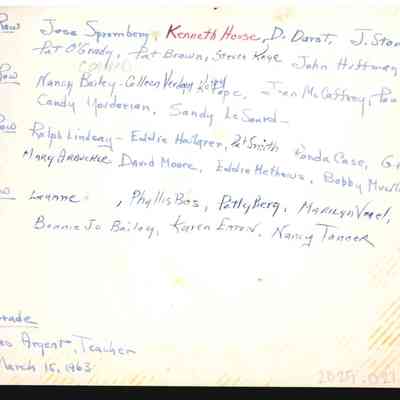 Row Jess Spromberg, Kenneth House, D. Durst, J. Ston
Pat O'Grady, Pat Brown, Steven Kaye John Hoffman
Row Nancy Bailey - Colleen Verday Kathy Pope, Jean McCaffrey, Pau
Candy Mordorian, Sandy LeSourd -
Row Ralph Lindsay - Eddie Hallgren, Pat Smith Ronda Case, G
Mary Arbuckle David Moore, Eddie Methews, Bobby
Leanne , Phyllis Bos, Patty Berg, Marilyn Vogel,
Bonnie Jo Bailey, Karen Eaton, Nancy Tanner
Grade
Argent, Teacher
March 15, 1963
2025.021